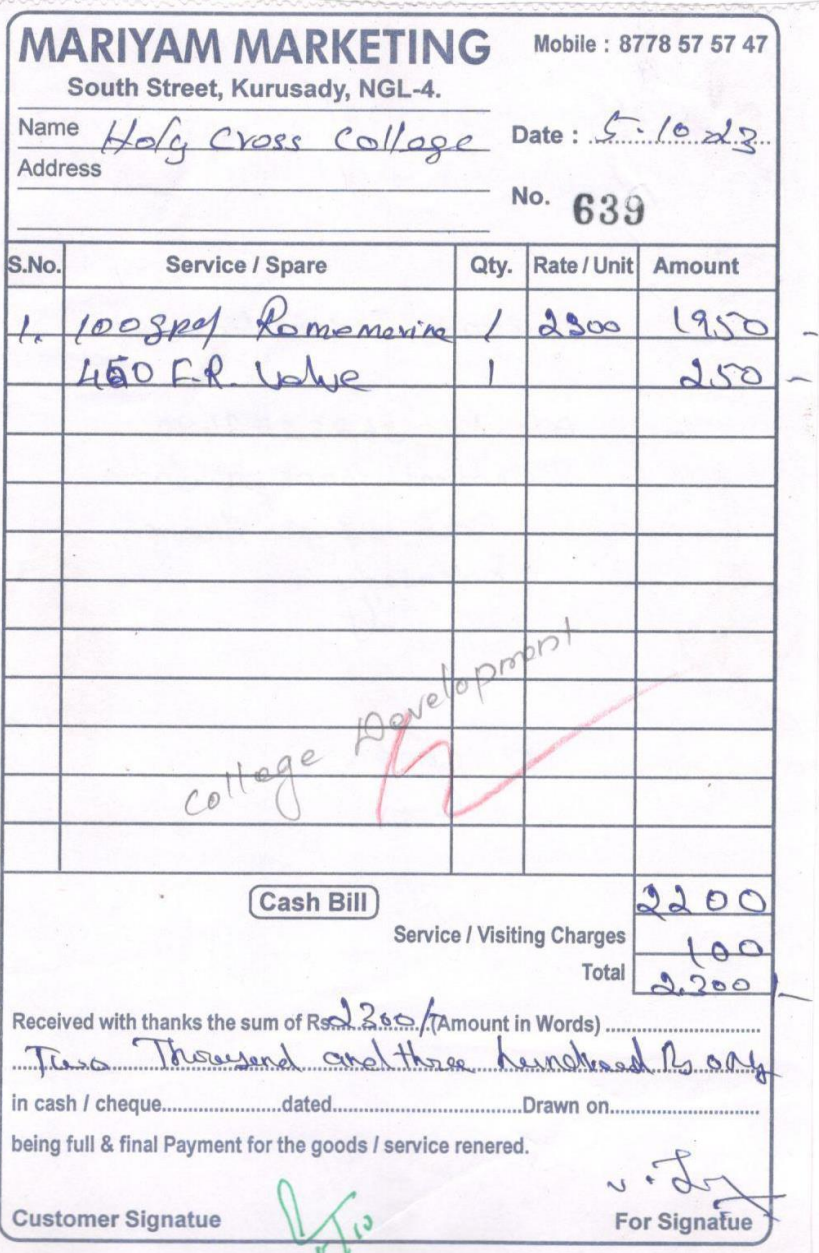 MARIYAM MARKETING
Mobile : 8778 57 57 47
South Street, Kurusady, NGL-4.
Name Holy Cross College
Date : 5.10.23
Address
No. 639
S.No. Service / Spare Qty. Rate / Unit Amount
1. 100 gpd 1 2300 1950 -
450 F.R. Valve 1 250 -
College Development
Cash Bill 2200
Service / Visiting Charges 100
Total 2300/-
Received with thanks the sum of Rs. 2300/- (Amount in Words)
Two Thousand and three hundread Rs only
in cash / cheque dated Drawn on
being full & final Payment for the goods / service renered.
Customer Signatue For Signatue